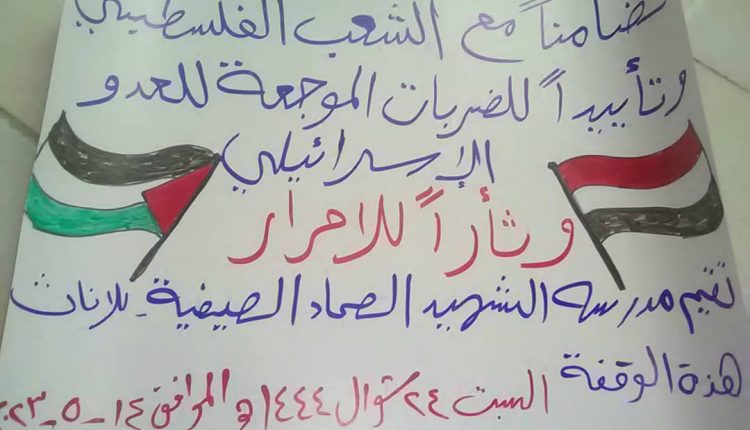 تضامناً مع الشعب الفلسطيني
وتأييداً للضربات الموجعة للعدو
الإسرائيلي
وثأراً للاحرار
تقيم مدرسة الشهيد الصماد الصيفية - للاناث
هذة الوقفة السبت ٢٤/شوال ١٤٤٤ه الموافق ١٤-٥-٢٠٢٣